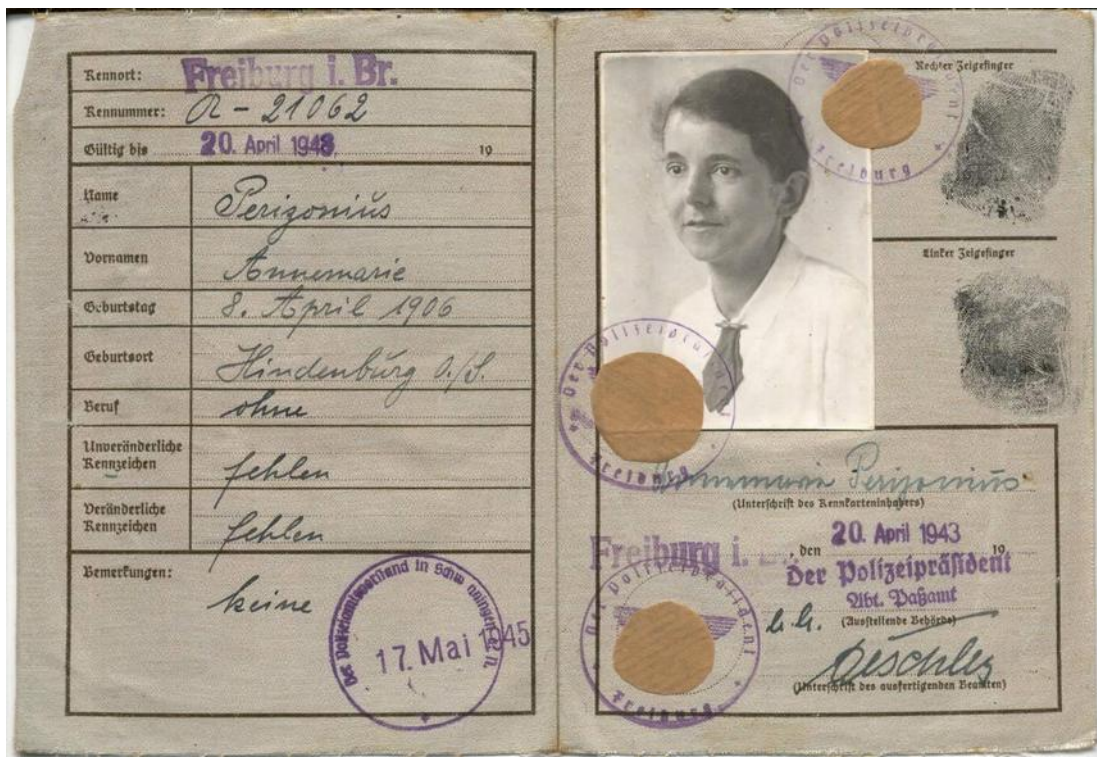 Kennort: Freiburg i. Br.
Kennummer: A - 21062
Gültig bis 20. April 1948 19
Name Perizonius
Vornamen Annemarie
Geburtstag 8. April 1906
Geburtsort Hindenburg O./S.
Beruf ohne
Unveränderliche
Kennzeichen fehlen
Veränderliche
Kennzeichen fehlen
Bemerkungen:
keine
Der Polizeiamtsvorstand in
17. Mai 1945
Der Polizeipräsident
Freiburg
Rechter Zeigefinger
Linker Zeigefinger
Der Polizeipräsident
Freiburg
Annemarie Perizonius
(Unterschrift des Kennkarteninhabers)
Freiburg i. Br., den 20. April 1943 19
Der Polizeipräsident
Abt. Paßamt
(Ausstellende Behörde)
Der Polizeipräsident
Freiburg
(Unterschrift des ausfertigenden Beamten)